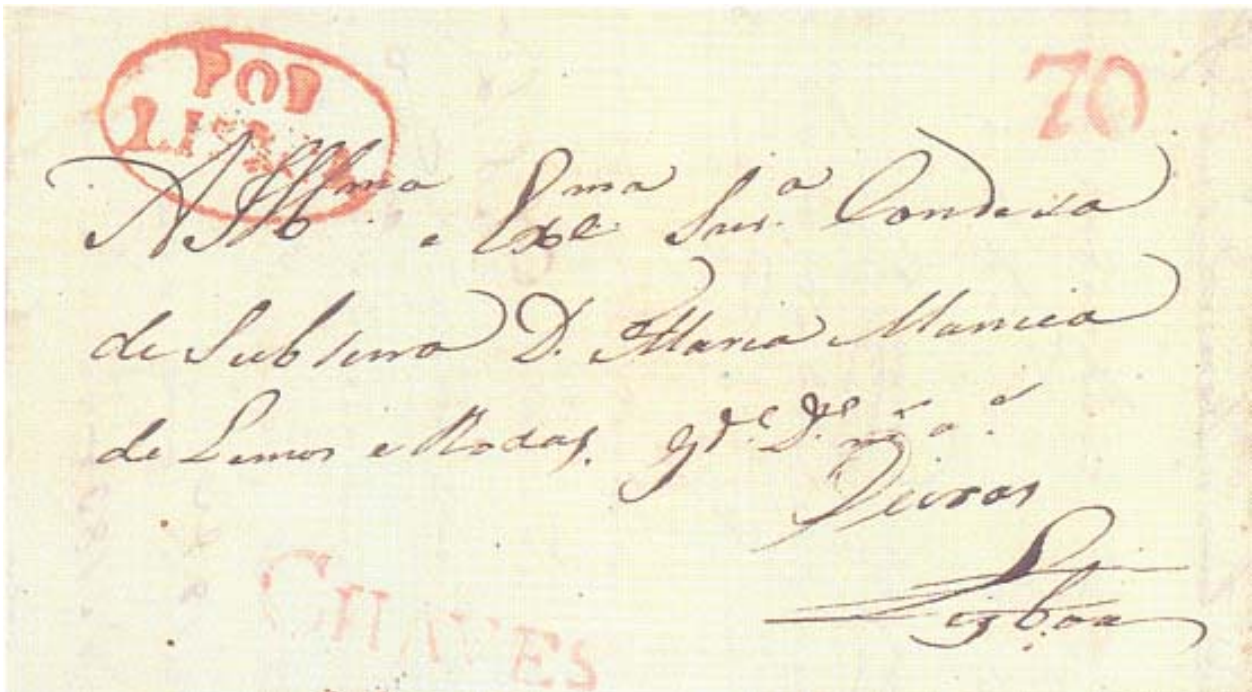 POR
LISBOA
70
A Illma e Exma Snra Condeça
de Subserra D. Maria Mancia
de Lemos e Rodas. gde De ms as
Lisboa
CHAVES